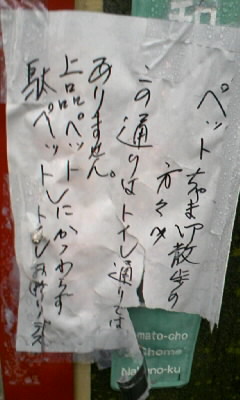 ペットちゃま御散歩の
方々へ
この通りはトイレ通りでは
ありません。
上品ペットにかかわらず
駄ペットトイレお断り
和
mato-cho
Chome
Nakano-ku